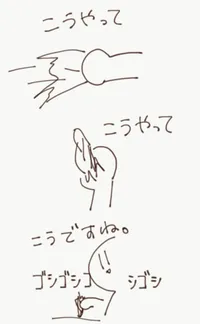 こうやって
こうやって
こうですね。
!!
ゴシゴシゴシゴシ